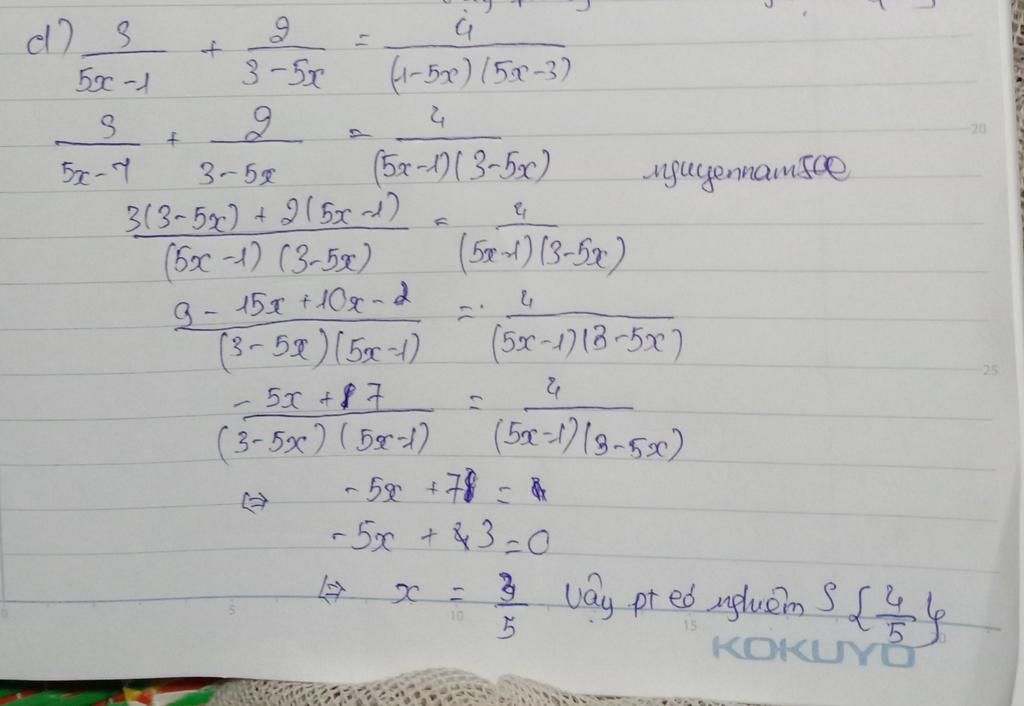 d) 3/(5x-1) + 2/(3-5x) = 4/((1-5x)(5x-3))
3/(5x-1) + 2/(3-5x) = 4/((5x-1)(3-5x)) nguyennam5ce
20
(3(3-5x) + 2(5x-1))/((5x-1)(3-5x)) = 4/((5x-1)(3-5x))
(9-15x+10x-2)/((3-5x)(5x-1)) = 4/((5x-1)(3-5x))
25
(-5x+7)/((3-5x)(5x-1)) = 4/((5x-1)(3-5x))
⇔ -5x + 7 = 4
-5x + 3 = 0
⇔ x = 3/5 Vậy pt có nghiệm S {4/5}
0 5 10 15
KOKUYO